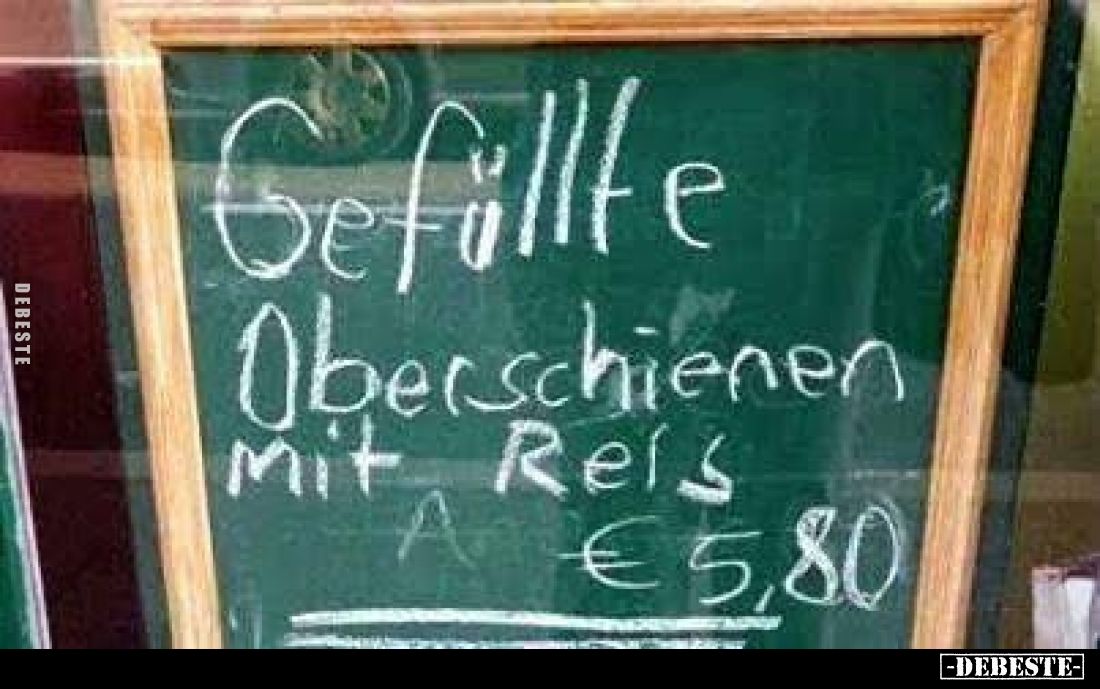 Gefüllte
Oberschienen
mit Reis
A € 5,80
DEBESTE
-DEBESTE-